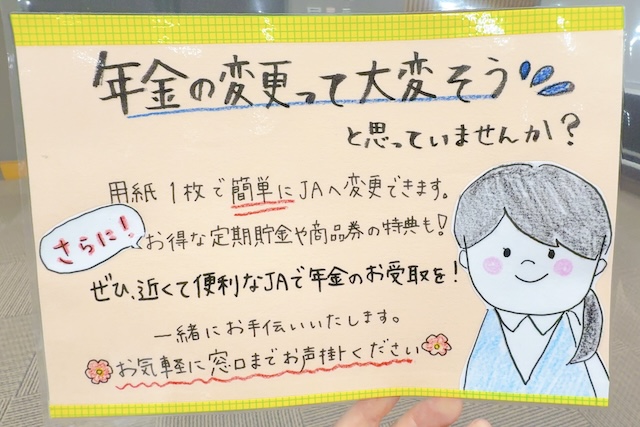 年金の変更って大変そう
と思っていませんか?
用紙1枚で簡単にJAへ変更できます。
さらに!
お得な定期貯金や商品券の特典も!
ぜひ、近くて便利なJAで年金のお受取を!
一緒にお手伝いいたします。
お気軽に窓口までお声掛けください